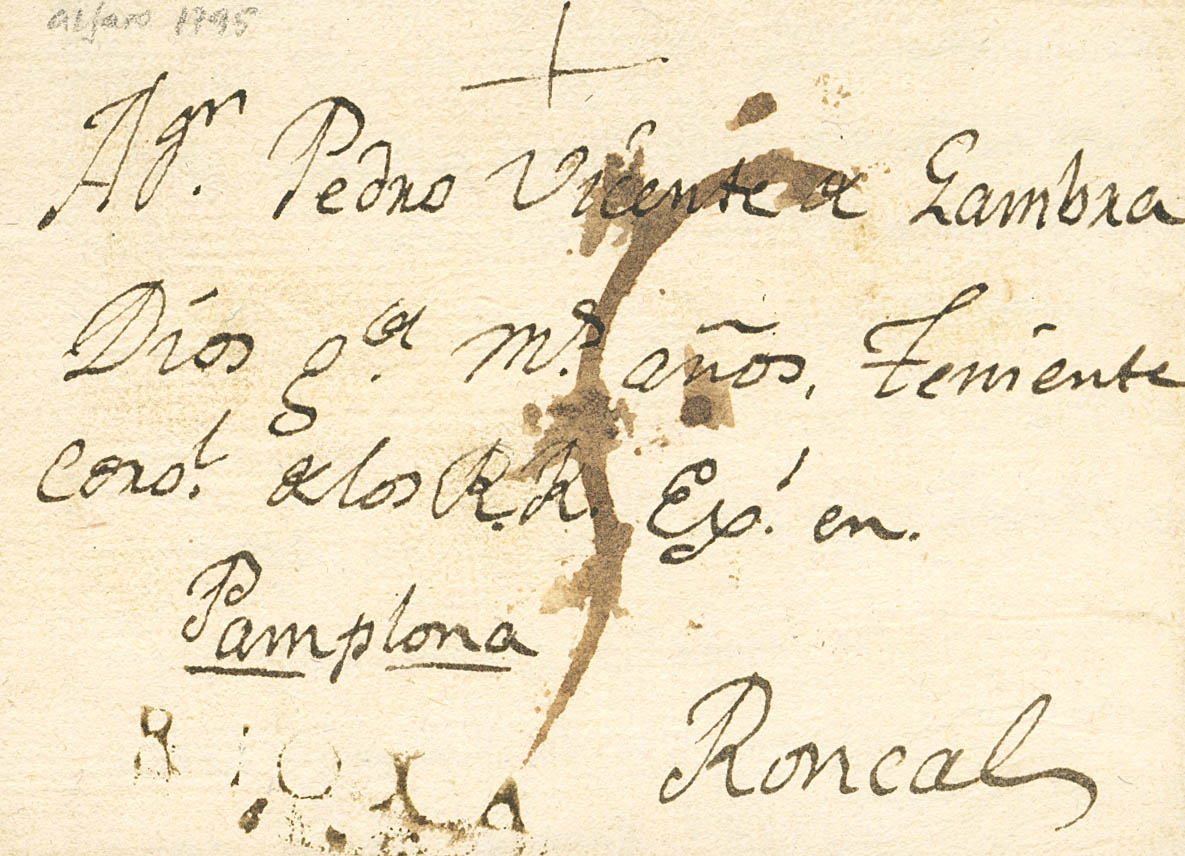 alfaro 1795
A Dn. Pedro Vicente de Gambra
Dios gde. ms. años, Teniente
Corol. de los R.R. Exs. en.
Pamplona
Roncal
RIOXA